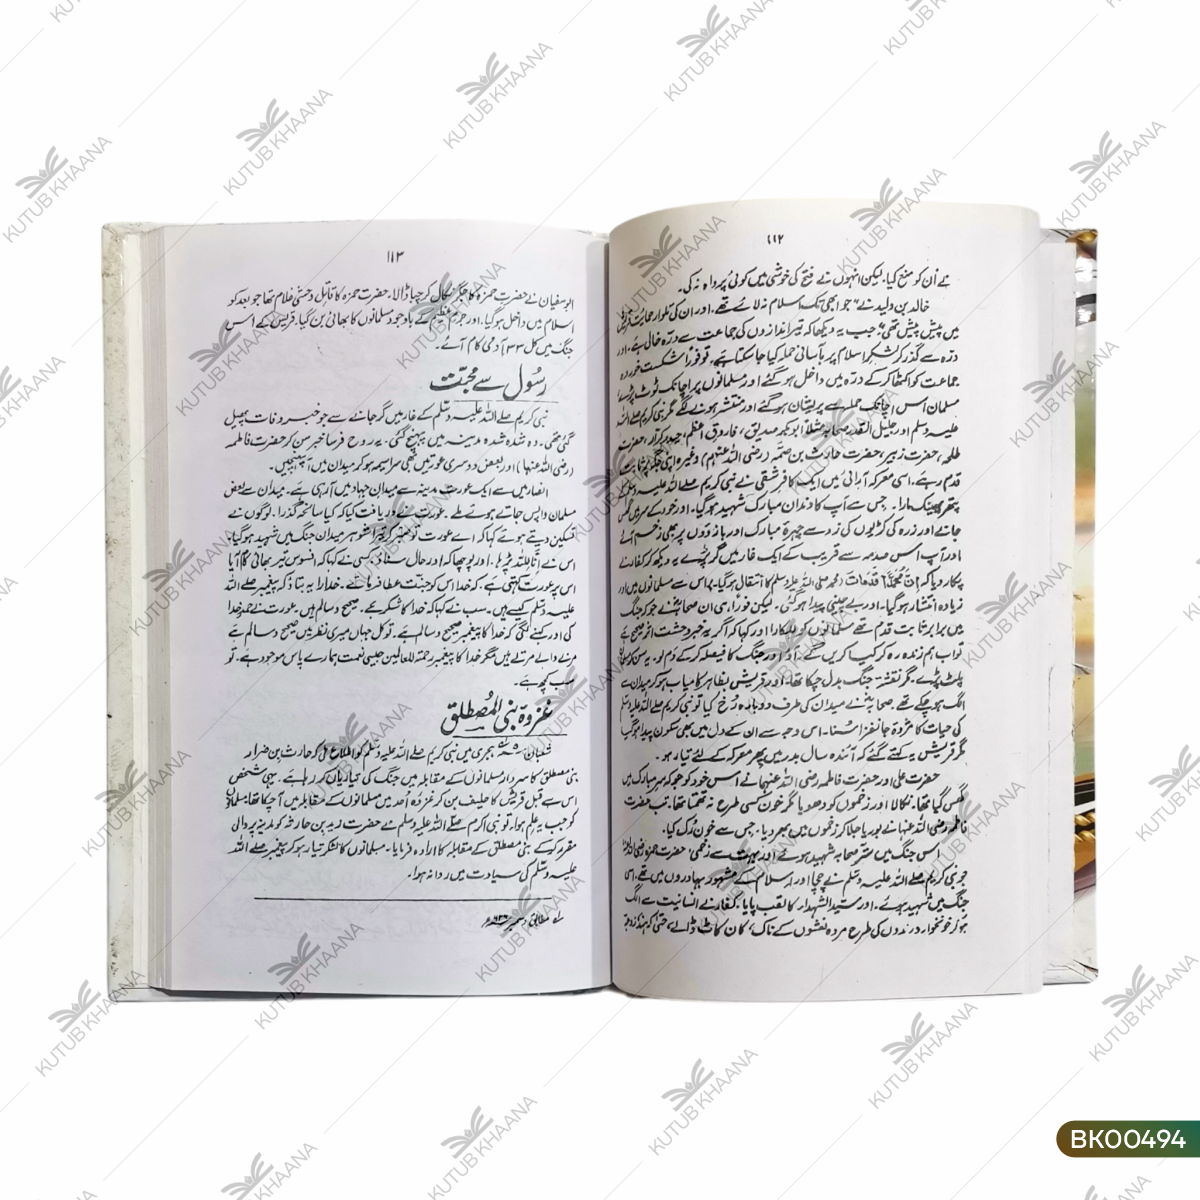 ۱۱۲
نے اُن کو منع کیا۔ لیکن انہوں نے فتح کی خوشی میں کوئی پرواہ نہ کی۔
خالد بن ولید نے جو ابھی تک اسلام نہ لائے تھے۔ اور ان کی تلوار حمایت قریش
میں پیش پیش تھی؛ جب یہ دیکھا کہ تیر اندازوں کی جماعت سے درّہ خالی ہے۔ اور
درّہ سے گذر کر لشکرِ اسلام پر بآسانی حملہ کیا جا سکتا ہے۔ تو فوراً شکست خوردہ
جماعت کو اکٹھا کر کے درّہ میں داخل ہو گئے اور مسلمانوں پر اچانک ٹوٹ پڑے۔
مسلمان اس اچانک حملہ سے پریشان ہو گئے اور منتشر ہونے لگے مگر نبی کریم صلے اللہ
علیہ وسلم اور جلیل القدر صحابہ مثلاً ابوبکر صدیق، فاروق اعظم، حیدر کرار، حضرت
طلحہ، حضرت زبیر، حضرت حارث بن صمّہ (رضی اللہ عنہم) وغیرہ اپنی جگہ پر ثابت
قدم رہے۔ اسی معرکہ آرائی میں ایک کافر شقی نے نبی کریم صلے اللہ علیہ وسلم کے
پتھر پھینک مارا۔ جس سے آپ کا دندان مبارک شہید ہو گیا۔ اور خود کے سر میں گھس
جانے اور زرہ کی کڑیوں کی زد سے چہرہ مبارک اور بازوؤں پر بھی زخم آئے
اور آپ اس صدمہ سے قریب کے ایک غار میں گر پڑے یہ دیکھ کر کفار نے
پکار دیا کہ إِنَّ مُحَمَّدًا قَدْ مَاتَ (محمد صلی اللہ علیہ وسلم کا انتقال ہو گیا) اس سے مسلمانوں میں اور
زیادہ انتشار ہو گیا۔ اور بے چینی پیدا ہو گئی۔ لیکن فوراً ہی ان صحابہ نے جو کہ جنگ
میں برابر ثابت قدم تھے مسلمانوں کو للکارا اور کہا کہ اگر یہ خبر وحشت اثر صحیح ہے
تو اب ہم زندہ رہ کر کیا کریں گے۔ آؤ اور جنگ کا فیصلہ کر کے دم لو۔ یہ سن کر مسلمان
پلٹ پڑے۔ مگر نقشۂ جنگ بدل چکا تھا۔ اور قریش بظاہر کامیاب ہو کر میدان سے
الگ ہو چکے تھے۔ صحابہ نے میدان کی طرف دوبارہ رُخ کیا تو نبی کریم صلے اللہ علیہ وسلم
کی حیات کا مژدۂ جانفزا سنا۔ اس وجہ سے ان کے دل میں بھی سکون پیدا ہو گیا
مگر قریش یہ کہتے گئے کہ آئندہ سال بدر میں پھر معرکہ کے لئے تیار رہو۔
حضرت علی اور حضرت فاطمہ رضی اللہ عنہما نے اس خود کو جو کہ سر مبارک میں
گھس گیا تھا۔ نکالا اور زخموں کو دھویا مگر خون کسی طرح نہ تھمتا تھا۔ تب حضرت
فاطمہ رضی اللہ عنہا نے بوریا جلا کر زخموں میں بھر دیا۔ جس سے خون رُک گیا۔
اس جنگ میں ستر صحابہ شہید ہوئے اور بہت سے زخمی، حضرت حمزہ رضی اللہ عنہ
جو نبی کریم صلے اللہ علیہ وسلم کے چچا اور اسلام کے مشہور بہادروں میں تھے۔ اسی
جنگ میں شہید ہوئے۔ اور سید الشہداء کا لقب پایا۔ کفار نے انسانیت سے الگ
ہو کر خونخوار درندوں کی طرح مردہ نعشوں کے ناک، کان کاٹ ڈالے، حتیٰ کہ ہندہ زوجہ
۱۱۳
ابوسفیان نے حضرت حمزہ کا جگر نکال کر چبا ڈالا۔ حضرت حمزہ کا قاتل وحشی غلام تھا جو بعد کو
اسلام میں داخل ہو گیا۔ اور جرم عظیم کے باوجود مسلمانوں کا بھائی بن گیا۔ قریش کے اس
جنگ میں کل ۳۳ آدمی کام آئے۔
رسُول سے محبّت
نبی کریم صلے اللہ علیہ وسلم کے غار میں گر جانے سے جو خبر وفات پھیل
گئی تھی۔ وہ شدہ شدہ مدینہ میں پہنچ گئی۔ یہ روح فرسا خبر سن کر حضرت فاطمہ
(رضی اللہ عنہا) اور بعض دوسری عورتیں بھی سراسیمہ ہو کر میدان میں آ پہنچیں۔
انصار میں سے ایک عورت مدینہ سے میدان جہاد میں آ رہی ہے۔ میدان سے بعض
مسلمان واپس جاتے ہوئے ملے۔ عورت نے دریافت کیا کہ کیا سانحہ گذرا۔ لوگوں نے
تسکین دیتے ہوئے کہا کہ اے عورت تو صبر کر تیرا شوہر میدان جنگ میں شہید ہو گیا۔
اس نے اِنّا للّٰہ پڑھا۔ اور پوچھا کہ اور حال سناؤ۔ کسی نے کہا کہ افسوس تیرے بھائی کام آیا
اس پر عورت کہتی ہے۔ کہ خدا اس کو جنت عطا فرمائے۔ خدارا یہ بتاؤ کہ پیغمبر صلے اللہ
علیہ وسلم کیسے ہیں۔ سب نے کہا کہ خدا کا شکر ہے۔ صحیح و سالم ہیں۔ عورت نے حمد خدا
کی اور کہنے لگی کہ خدا کا پیغمبر صحیح و سالم ہے۔ تو کل جہاں میری نظر میں صحیح و سالم ہے
مرنے والے مرتے ہیں مگر خدا کا پیغمبر رحمتہ للعالمین جیسی نعمت ہمارے پاس موجود ہے۔ تو
سب کچھ ہے۔
غزوۂ بنی المُصْطلق
شعبان ۵ھ ہجری میں نبی کریم صلے اللہ علیہ وسلم کو اطلاع ملی کہ حارث بن ضرار
بنی مصطلق کا سردار مسلمانوں کے مقابلہ میں جنگ کی تیاریاں کر رہا ہے۔ یہی شخص
اس سے قبل قریش کا حلیف بن کر غزوہ اُحد میں مسلمانوں کے مقابلہ میں آ چکا تھا؛ مسلمانوں
کو جب یہ علم ہوا۔ تو نبی اکرم صلے اللہ علیہ وسلم نے حضرت زید بن حارثہ کو مدینہ پر والی
مقرر کر کے بنی مصطلق کے مقابلہ کا ارادہ فرمایا۔ مسلمانوں کا لشکر تیار ہو کر پیغمبر صلے اللہ
علیہ وسلم کی سیادت میں روانہ ہوا۔
لہ مطابق دسمبر ۶۲۶ء
BK00494
KUTUB KHAANA